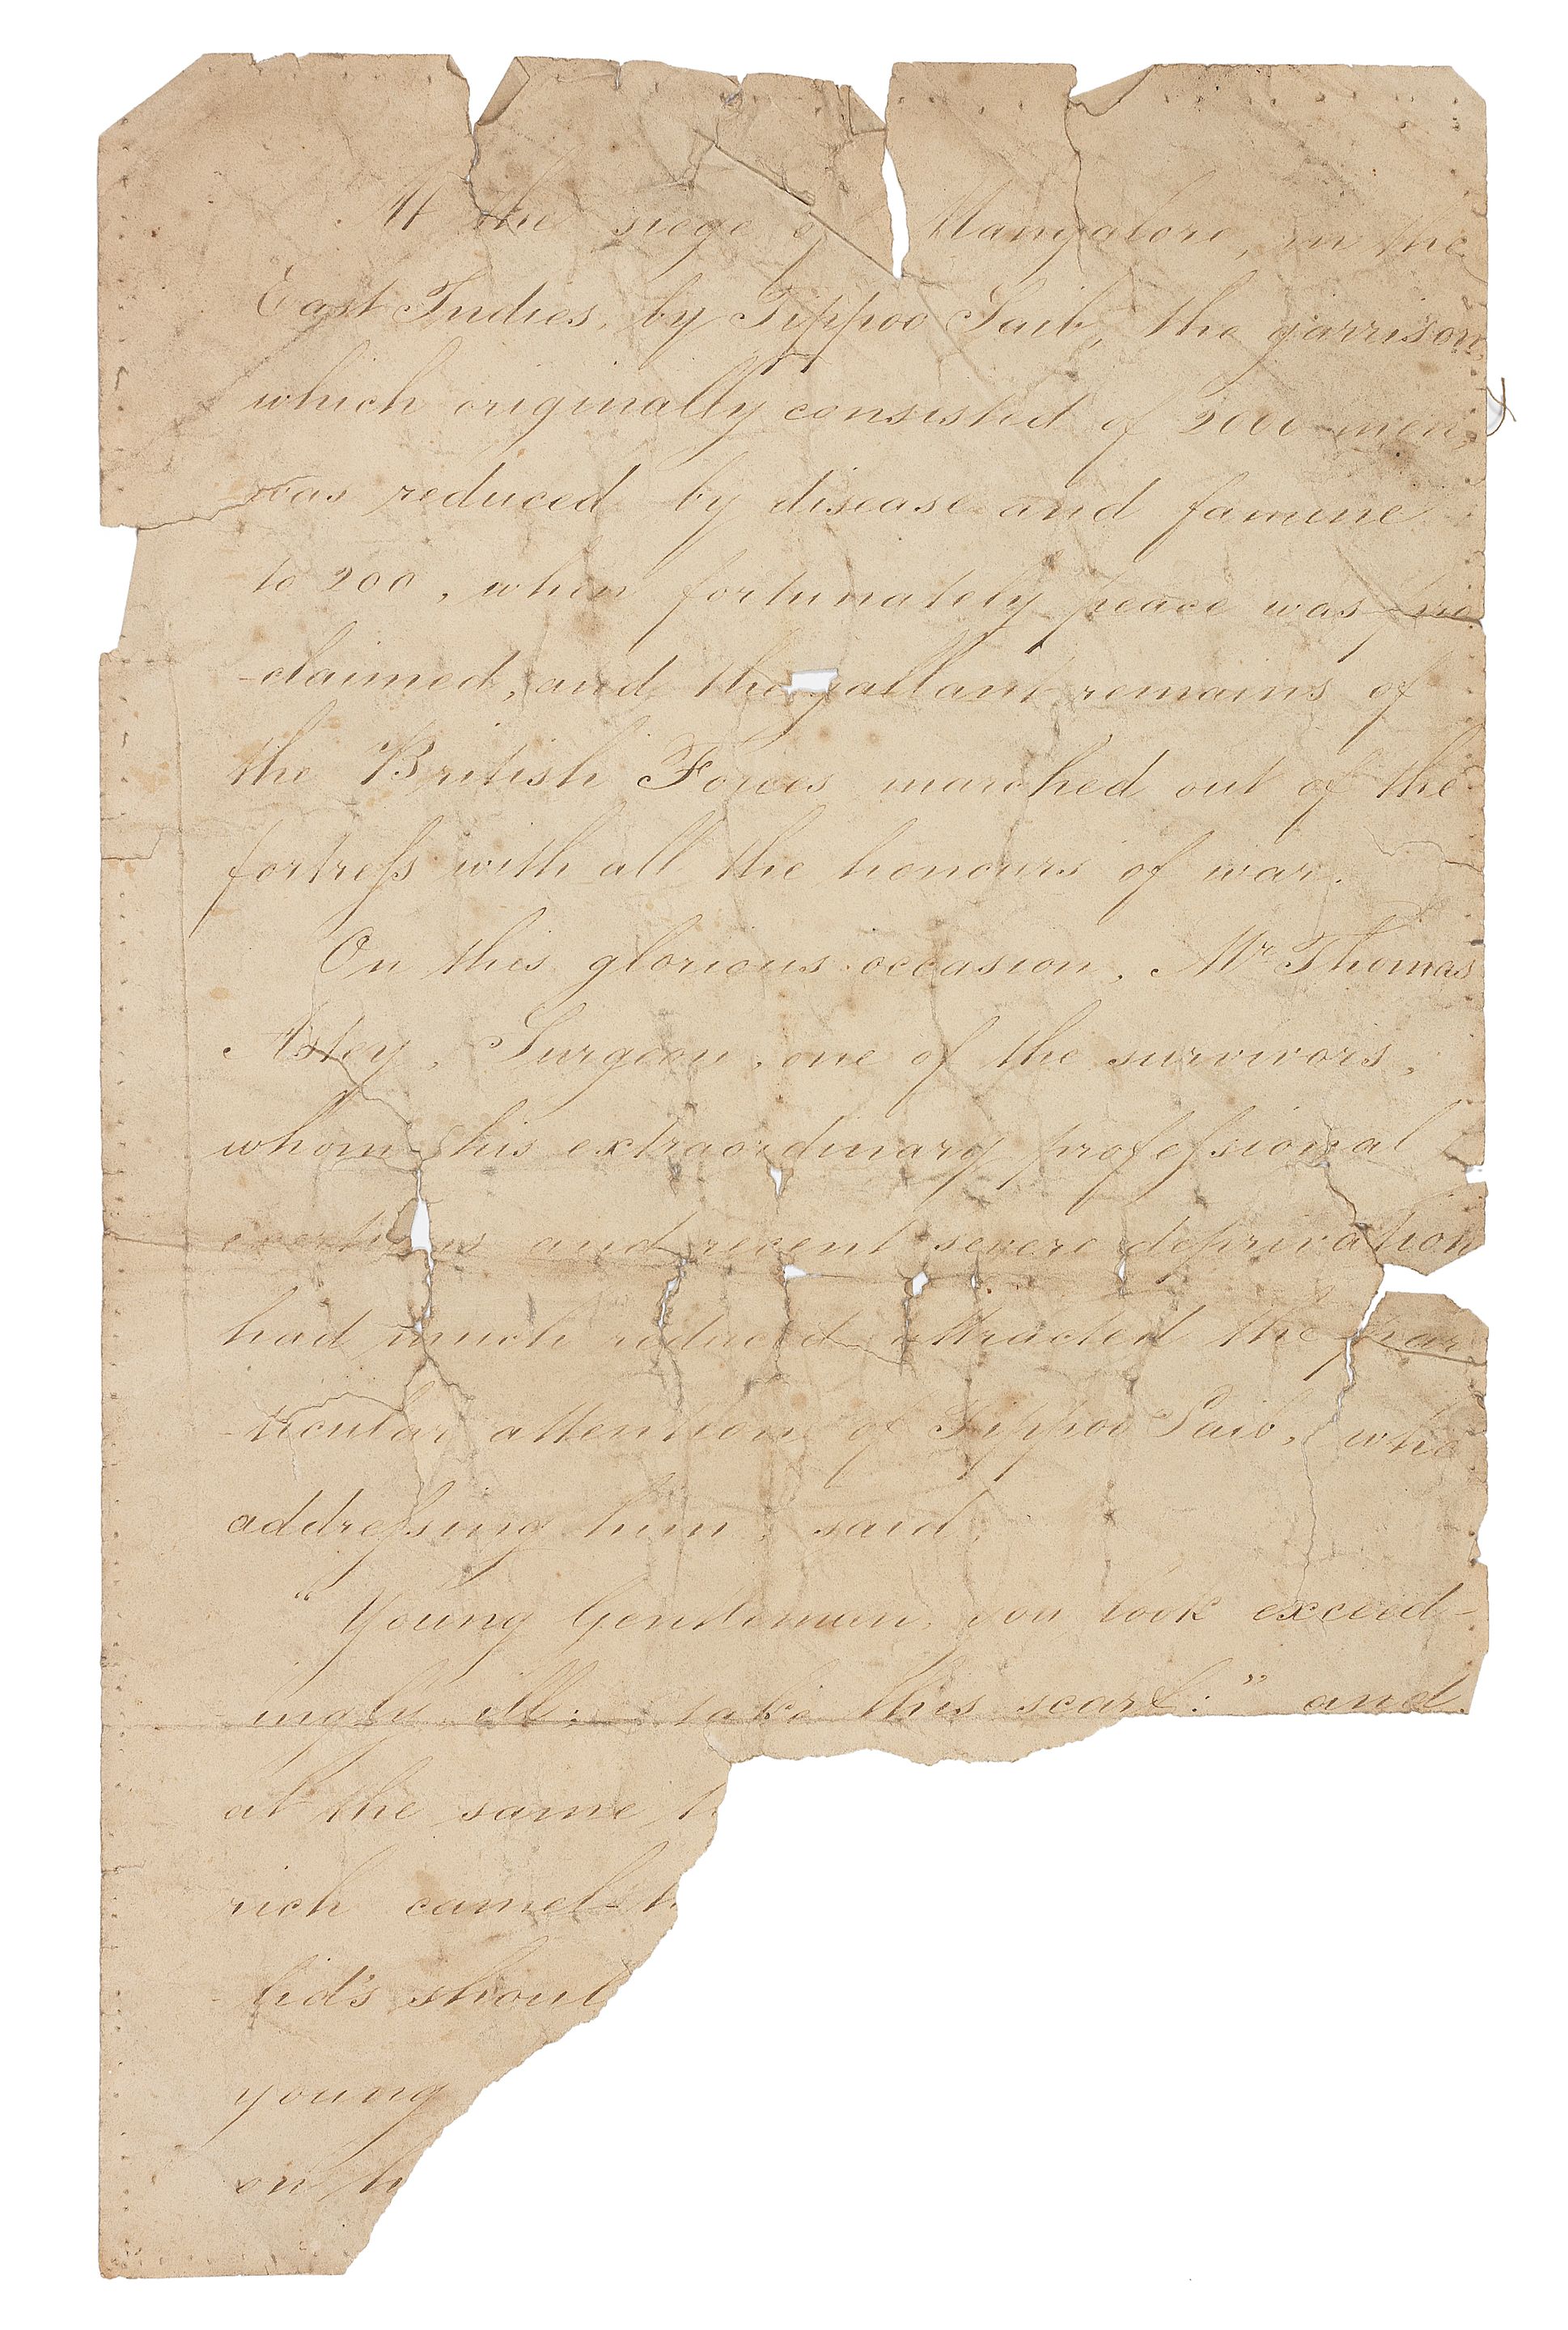 At the siege of Mangalore, in the
East Indies, by Tippoo Saib, the garrison,
which originally consisted of 2000 men,
was reduced by disease and famine
to 200, when fortunately peace was pro
-claimed, and the gallant remains of
the British Forces marched out of the
fortreſs with all the honours of war.
On this glorious occasion, Mr Thomas
Astey, Surgeon, one of the survivors,
whom his extraordinary profeſsional
exertions and recent severe deprivation
had much reduced attracted the par
-ticular attention of Tippoo Saib, who
addreſsing him, said,
"Young Gentleman, you look exceed-
ingly ill: take this scarf:" and
at the same
rich camel-h
lid's shoul
young
on h